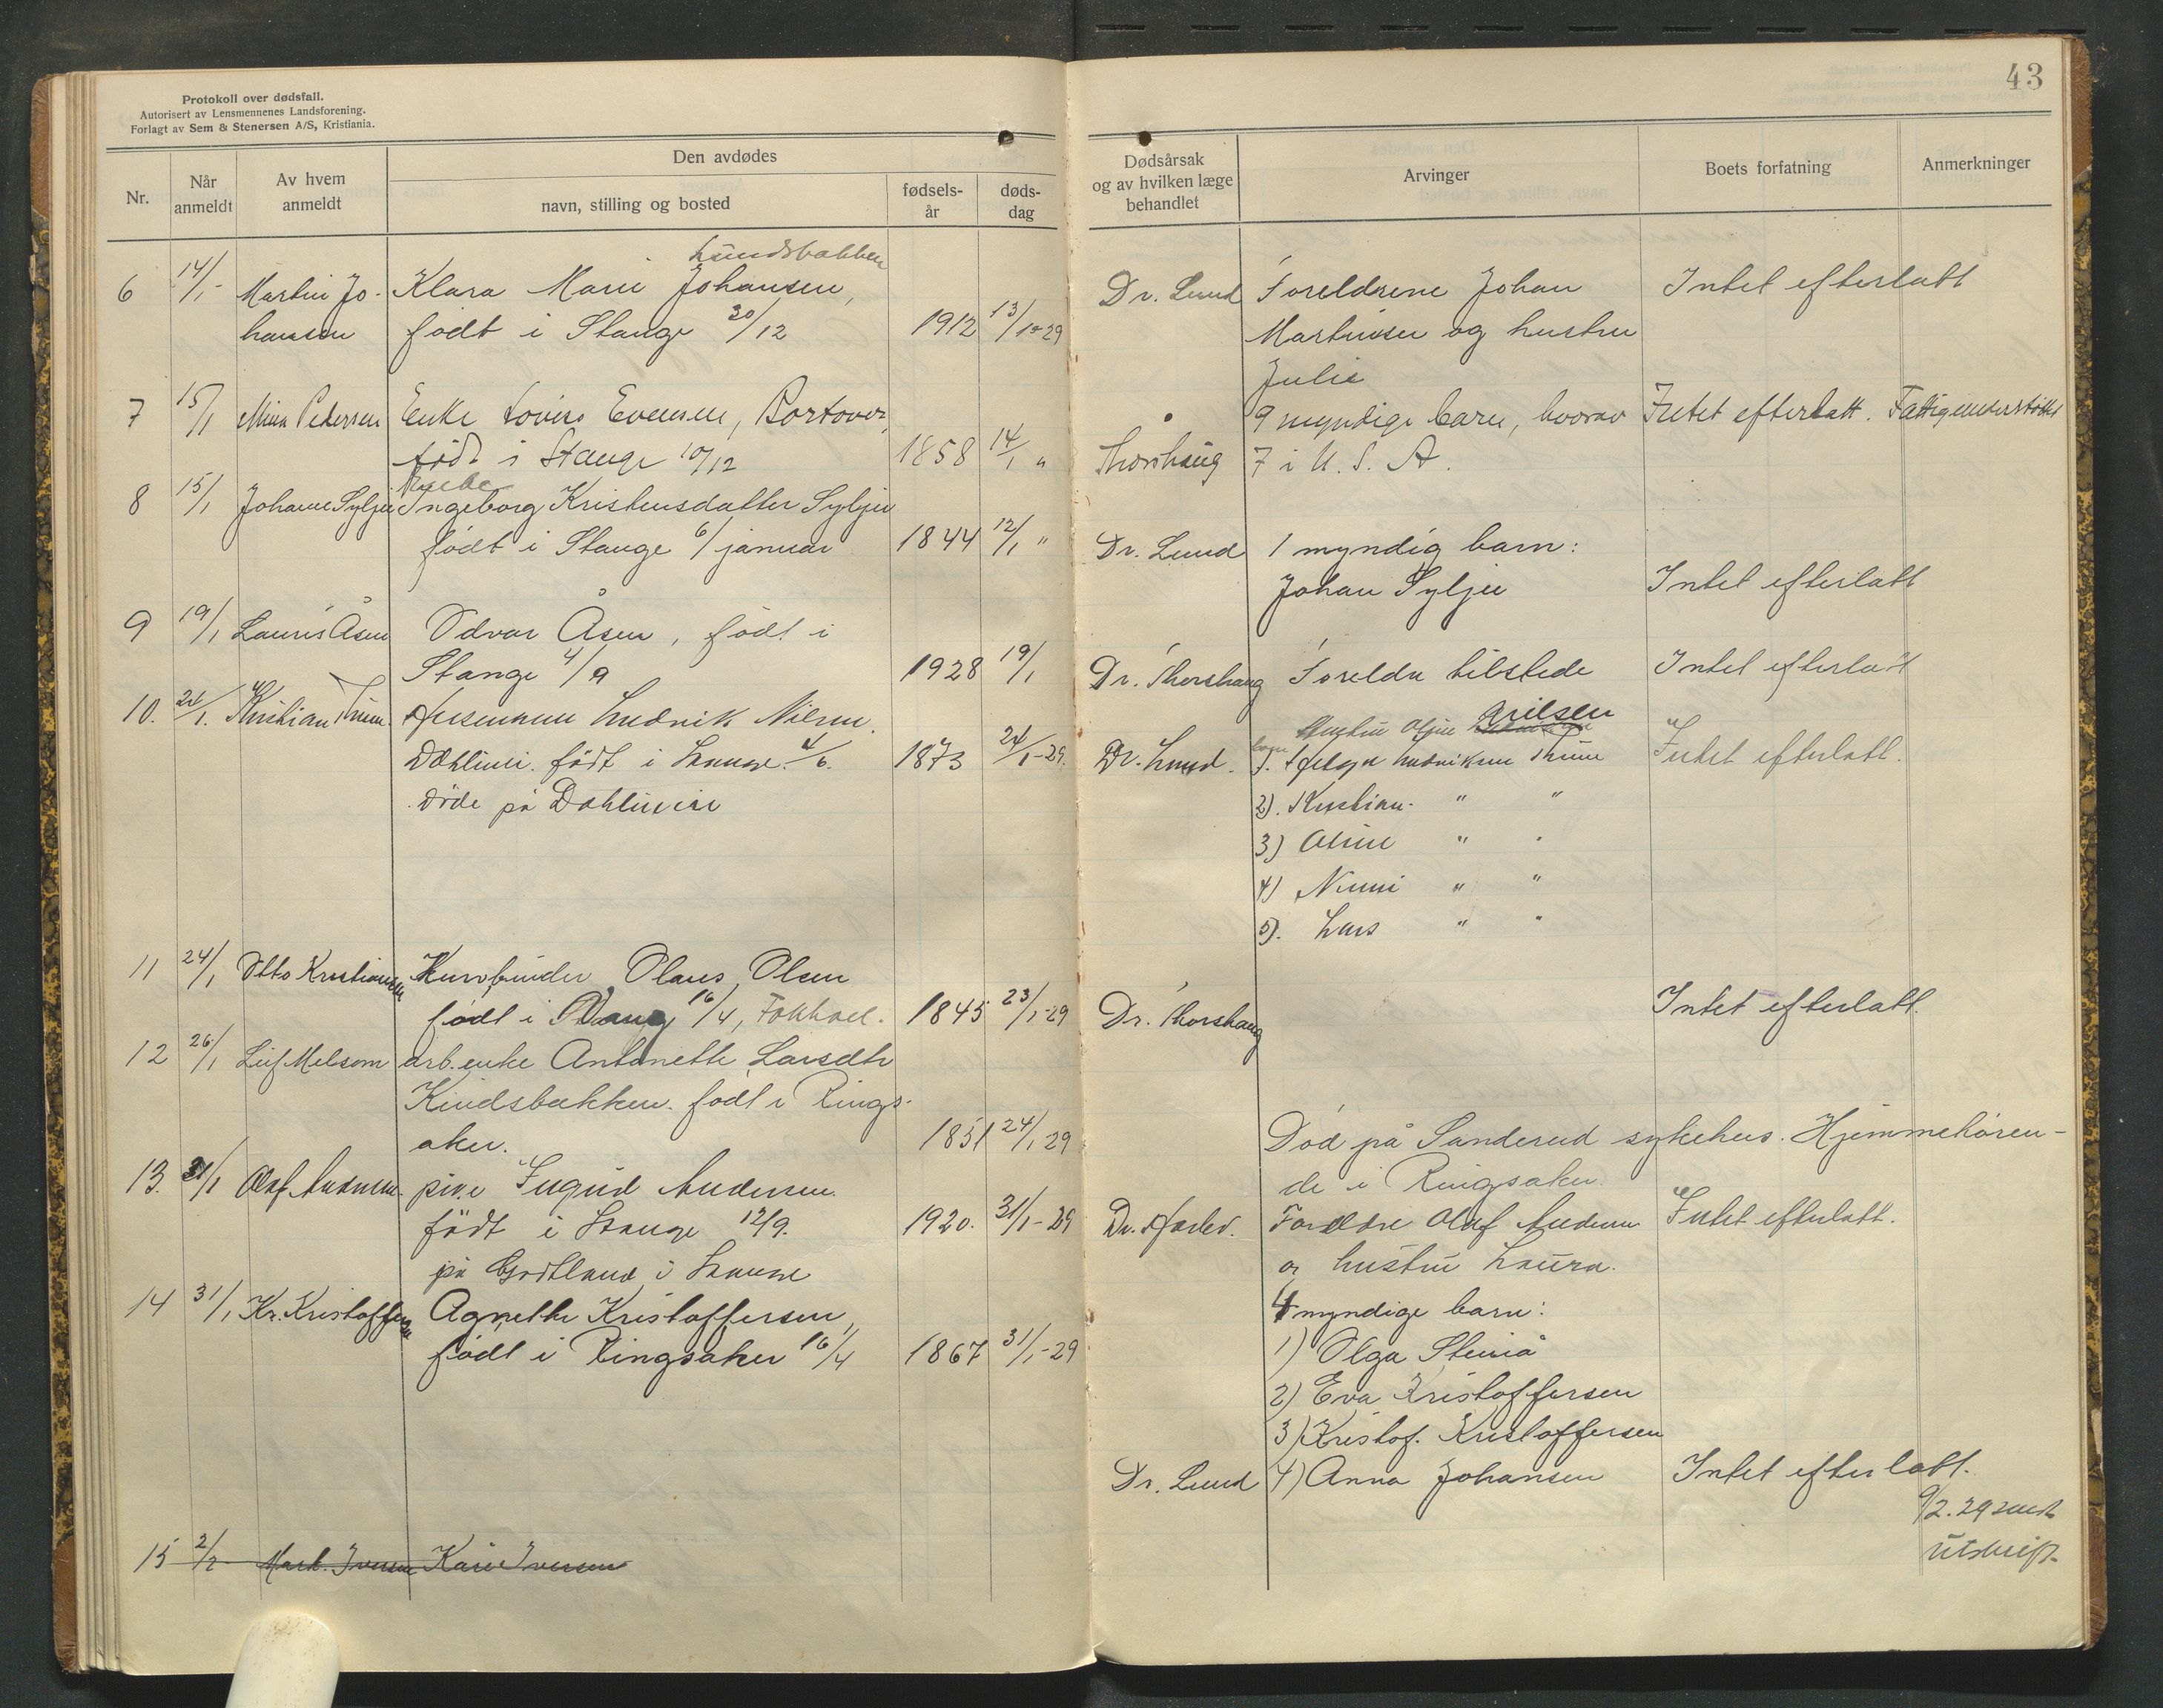 Protokoll over dødsfall.
Autorisert av Lensmennenes Landsforening.
Forlagt av Sem & Stenersen A/S, Kristiania.
Nr.
Når anmeldt
Av hvem anmeldt
Den avdødes
navn, stilling og bosted
fødsels-år
døds-dag
6 14/1- Martin Jo- Klara Marie Johansen,
hansen født i Stange 30/12 1912 13/1-29
7 15/1 Mina Pedersen Enke Lovise Evensen,
født i Stange 10/12 1858 14/1 "
8 15/1 Johanne Sylju Ingeborg Kristensdatter Sylju
født i Stange 6/januar 1844 12/1 "
9 19/1 Lauris Åsen Odvar Åsen, født i
Stange 4/9 1928 19/1
10. Kristian Husmann Ludvik Nilsen.
født i Stange 4/6. 1873 24/1-29.
døde på
11 24/1 Otto Kristiansen Kurvbinder Olaus Olsen
født i Vang 16/4, Fokhol. 1845 23/1-29
12 26/1 Leif Melsom arb.enke Antonette Larsdtr
Kindsbakken. født i Rings-
aker. 1851 24/1 29
13. 31/1 Olaf Andersen pike Ingrid Andersen.
født i Stange 12/9. 1920. 31/1-29
på i Stange
14 31/1 Kr. Kristoffersen Agnethe Kristoffersen,
født i Ringsaker 16/4 1867 31/1-29
15 2/2 Mart. Iversen Kari Iversen
43
Dødsårsak
og av hvilken læge
behandlet
Arvinger
Boets forfatning
Anmerkninger
Dr. Lund Foreldrene Johan Intet efterlatt
Martinsen og hustru
Julie
9 myndige barn, hvorav Intet efterlatt. Fattigunderstøttet
Thorshaug 7 i U. S. A.
Dr. Lund 1 myndig barn:
Johan Sylju Intet efterlatt
Dr. Thorshaug Foreldre tilstede Intet efterlatt
Hustru Nilsen
Dr. Lund. 1. Helga Ludviksen Intet efterlatt.
2). Kristian " "
3) "
4) " "
5). Lars " "
Dr. Thorshaug Intet efterlatt.
Død på Sanderud sykehus. Hjemmehören-
de i Ringsaker.
Foreldre Olaf Andersen Intet efterlatt.
og hustru Laura.
4 myndige barn:
1) Olga
2) Eva Kristoffersen
3) Kristof. Kristoffersen
Dr. Lund 4) Anna Johansen Intet efterlatt.
9/2.29 sendt
utskrift